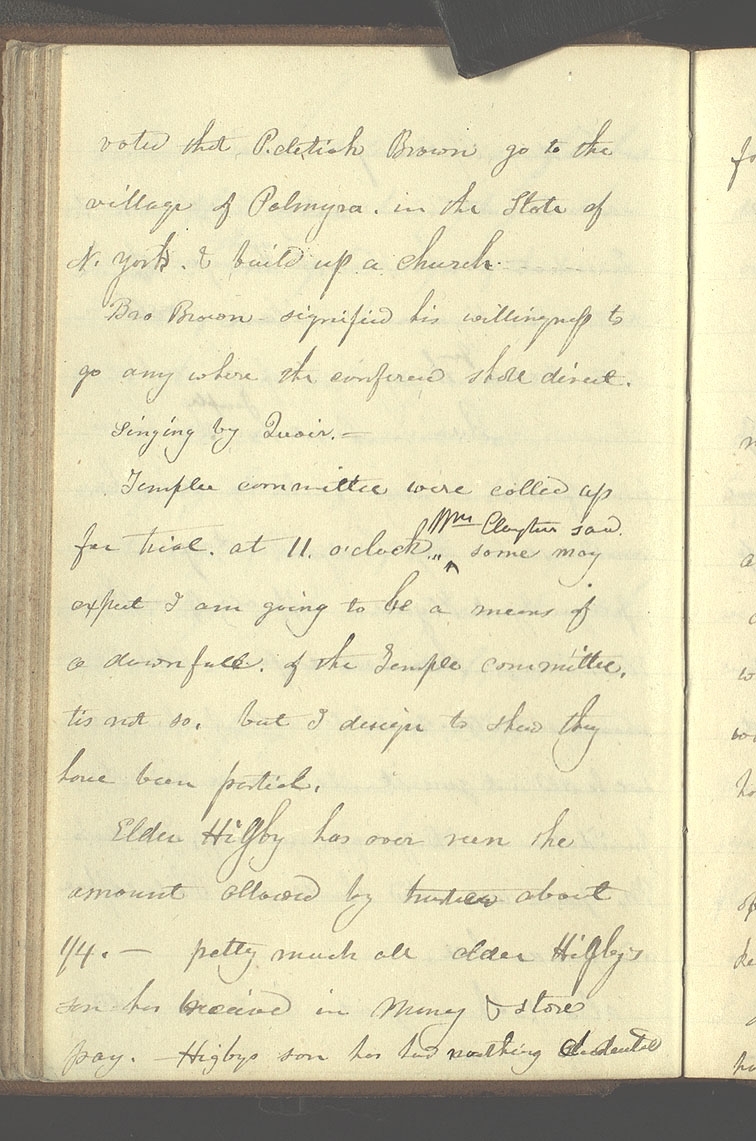 voted that Peletiah Brown go to the
village of Palmyra. in the State of
N. York. & build up a church.
Bro Brown signified his willingness to
go any where the conferenc shall direct.
Singing by Quoir. —
Temple committee were called up
for trial. at 11. o'clock.
Wm Clayton said.
some may
expect I am going to be a means of
a downfall. of the Temple committee.
tis not so. but I design to shew they
have been partial.
Elder Higby has over run the
amount allowed by trustees about
1/4. — pretty much all elder Higby's
son has received in Money & store
pay. — Higbys son has had nothing